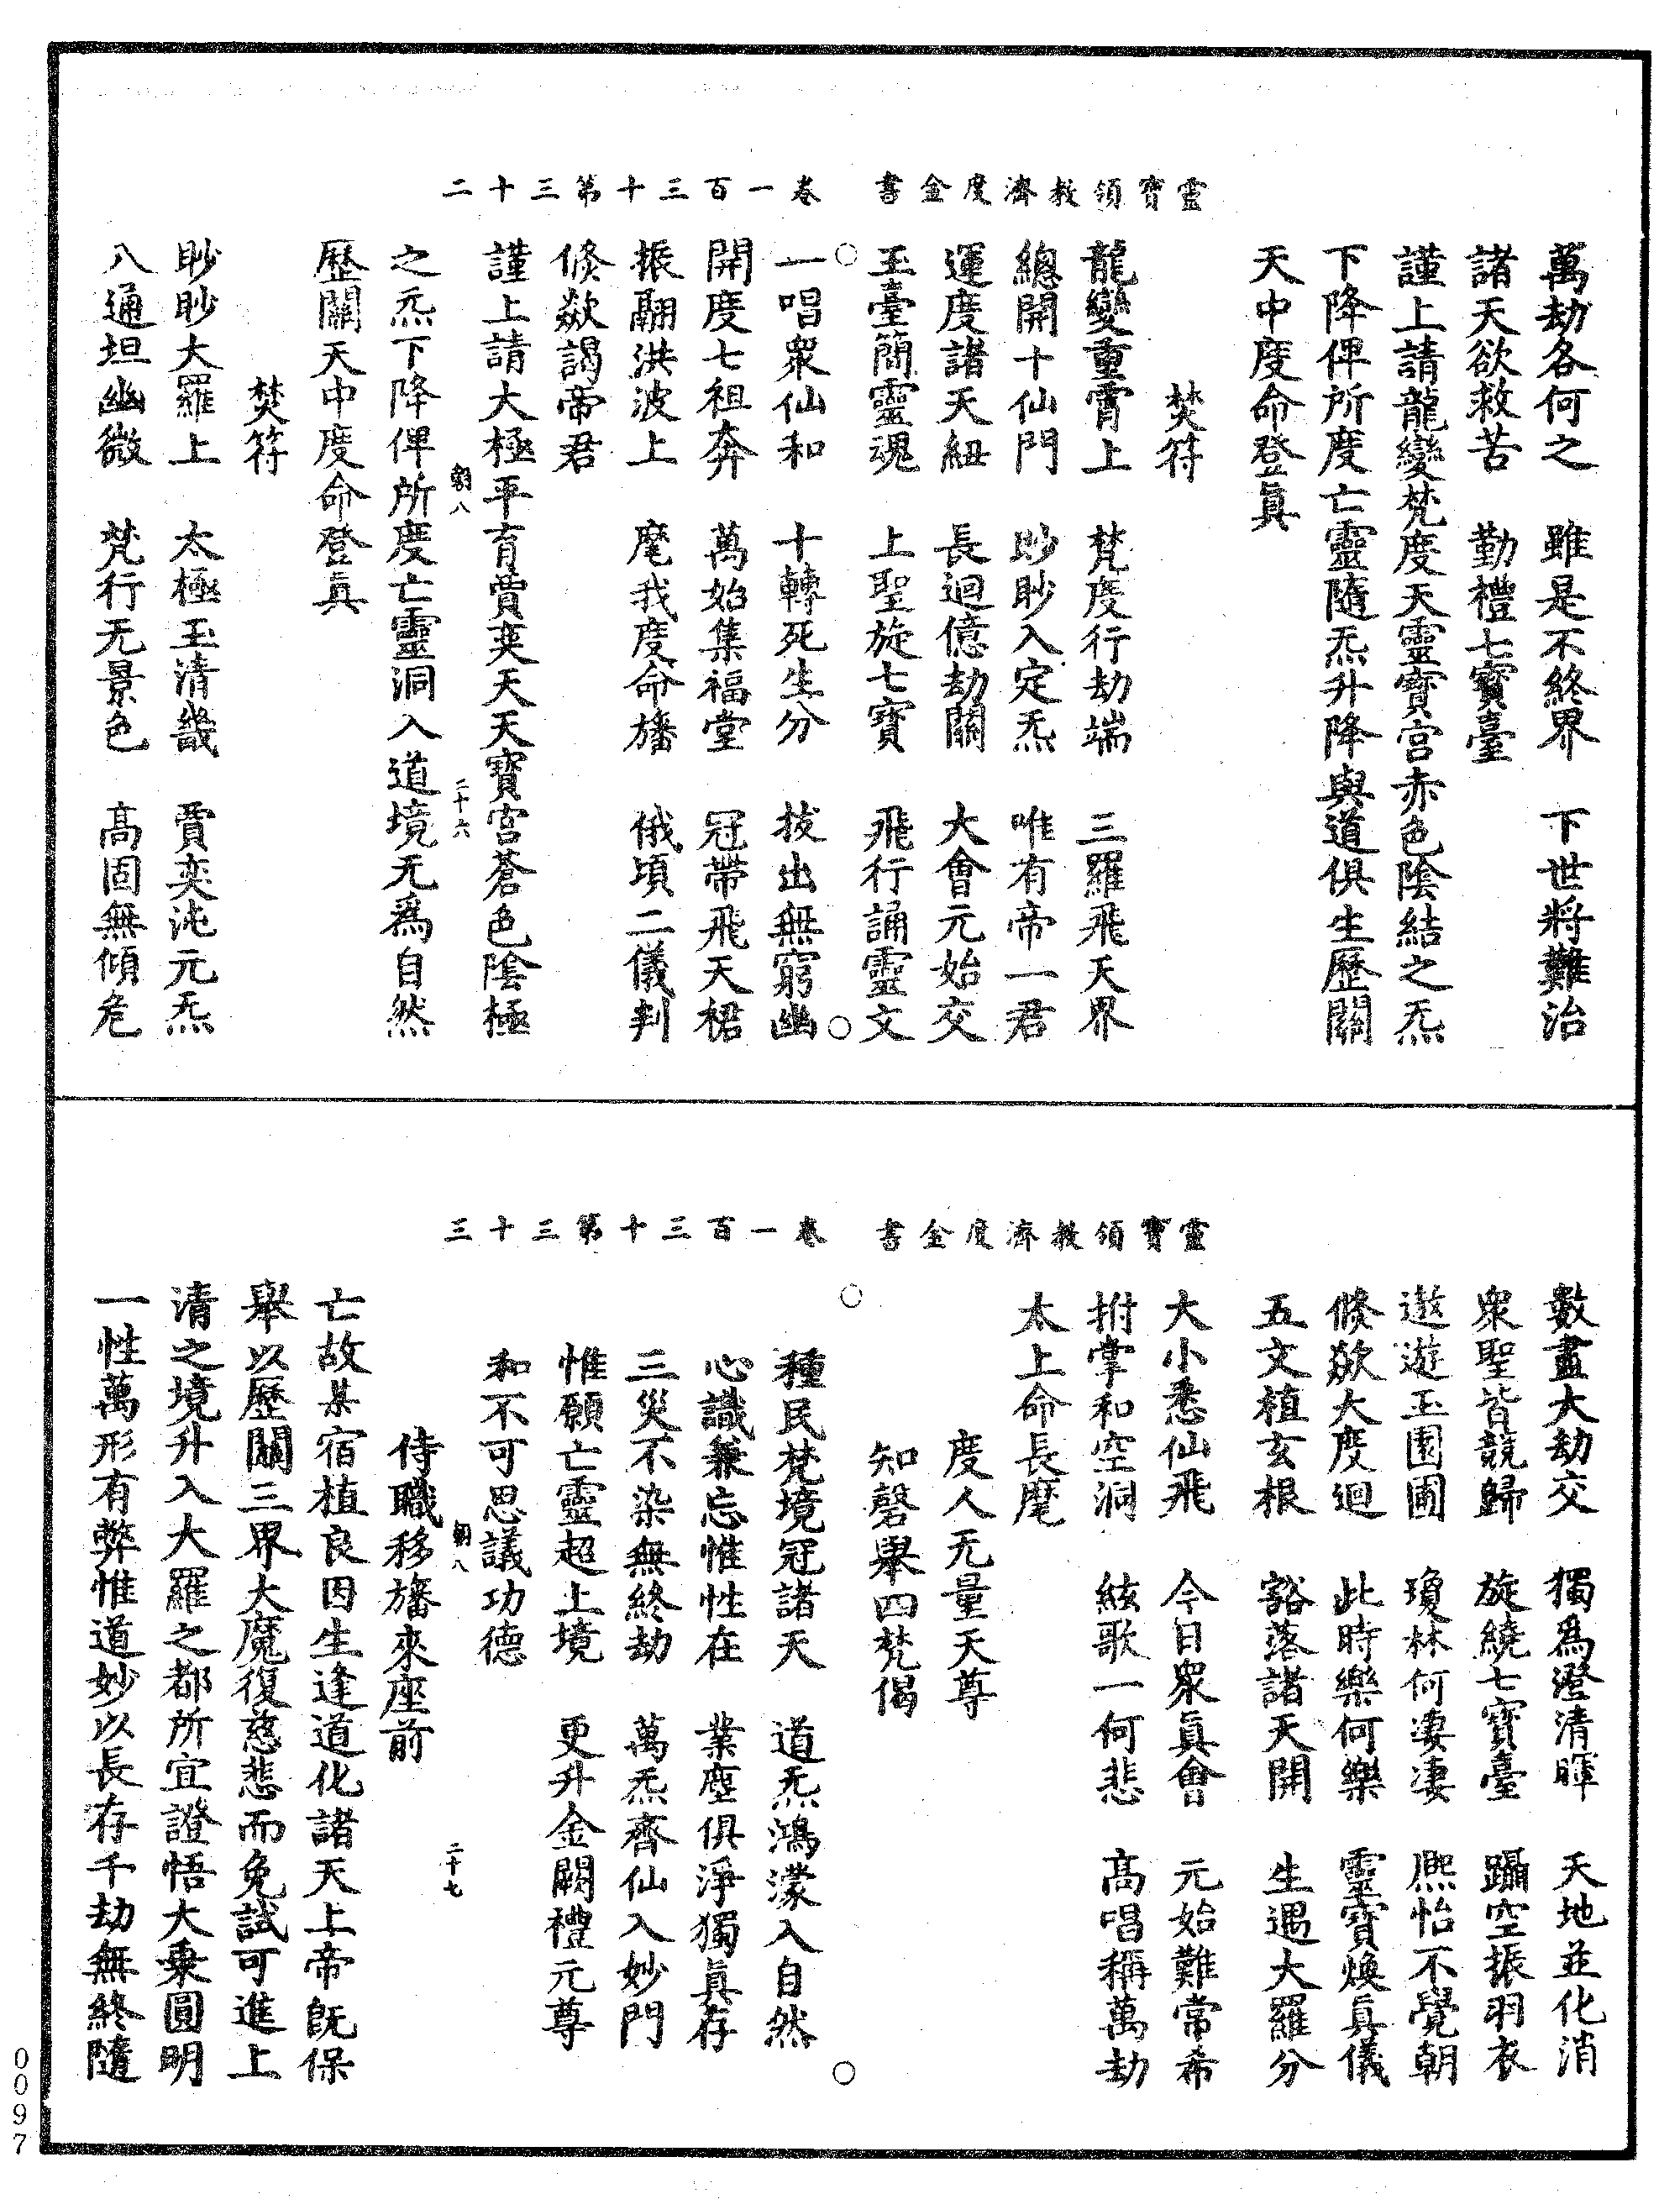 靈寶領教濟度金書　卷一百三十第三十二
萬劫各何之　雖是不終界　下世將難治
諸天欲救苦　勤禮七寶臺
謹上請龍變梵度天靈寶宮赤色陰結之炁
下降俾所度亡靈隨炁升降與道俱生歷關
天中度命登真
焚符
龍變重霄上　梵度行劫端　三羅飛天界
總開十仙門　眇眇入定炁　唯有帝一君
運度諸天紐　長迴億劫關　大會元始交
玉臺簡靈魂　上聖旋七寶　飛行誦靈文
一唱衆仙和　十轉死生分　拔出無窮幽
開度七祖奔　萬始集福堂　冠帶飛天裙
振翮洪波上　麾我度命旛　俄頃二儀判
倐欻謁帝君
謹上請大極平育賈奕天天寶宮蒼色陰極
朝八　二十六
之炁下降俾所度亡靈洞入道境无爲自然
歷關天中度命登真
焚符
眇眇大羅上　太極玉清畿　賈奕沌元炁
八通坦幽微　梵行无景色　高固無傾危
靈寶領教濟度金書　卷一百三十第三十三
數盡大劫交　獨爲澄清暉　天地並化消
衆聖皆競歸　旋繞七寶臺　躡空振羽衣
遨遊玉園圃　瓊林何淒淒　熈怡不覺朝
倐欻大度迴　此時樂何樂　靈寶煥真儀
五文植玄根　豁落諸天開　生遇大羅分
大小悉仙飛　今日衆真會　元始難常希
拊掌和空洞　絃歌一何悲　高唱稱萬劫
太上命長麾
度人无量天尊
知磬舉四梵偈
種民梵境冠諸天　道炁鴻濛入自然
心識兼忘惟性在　業塵俱淨獨真存
三災不染無終劫　萬炁齊仙入妙門
惟願亡靈超上境　更升金闕禮元尊
和不可思議功德
朝八　二十七
侍職移旛來座前
亡故某宿植良因生逢道化諸天上帝既保
舉以歷關三界大魔復慈悲而免試可進上
清之境升入大羅之都所宜證悟大乗圓明
一性萬形有弊惟道妙以長存千劫無終隨
0097